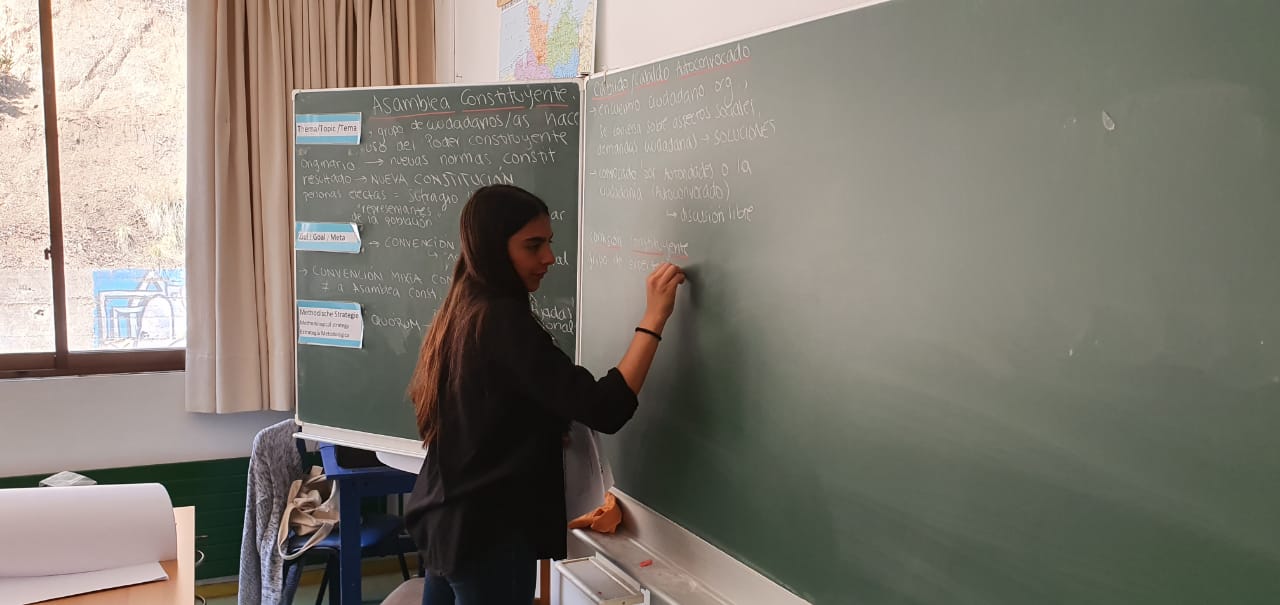 Asamblea Constituyente.
Thema/Topic/Tema
grupo de ciudadanos/as hace
uso del Poder constituyente
originario → nuevas normas constit
resultado → NUEVA CONSTITUCIÓN
personas electas = sufragio
"representantes
de la población"
Ziel / Goal / Meta
→ CONVENCIÓN
→ CONVENCIÓN MIXTA CON
≠ a Asamblea Const.
Methodische Strategie
Methodological strategy
Estrategia Metodológica
QUORUM
Cabildo/Cabildo Autoconvocado
→ encuentro ciudadano org,
se conversa sobre aspectos sociales,
demandas ciudadanas → SOLUCIONES
→ convocado por autoridades o la
ciudadanía (Autoconvocado)
→ discusión libre
Comisión Constituyente
grupo de